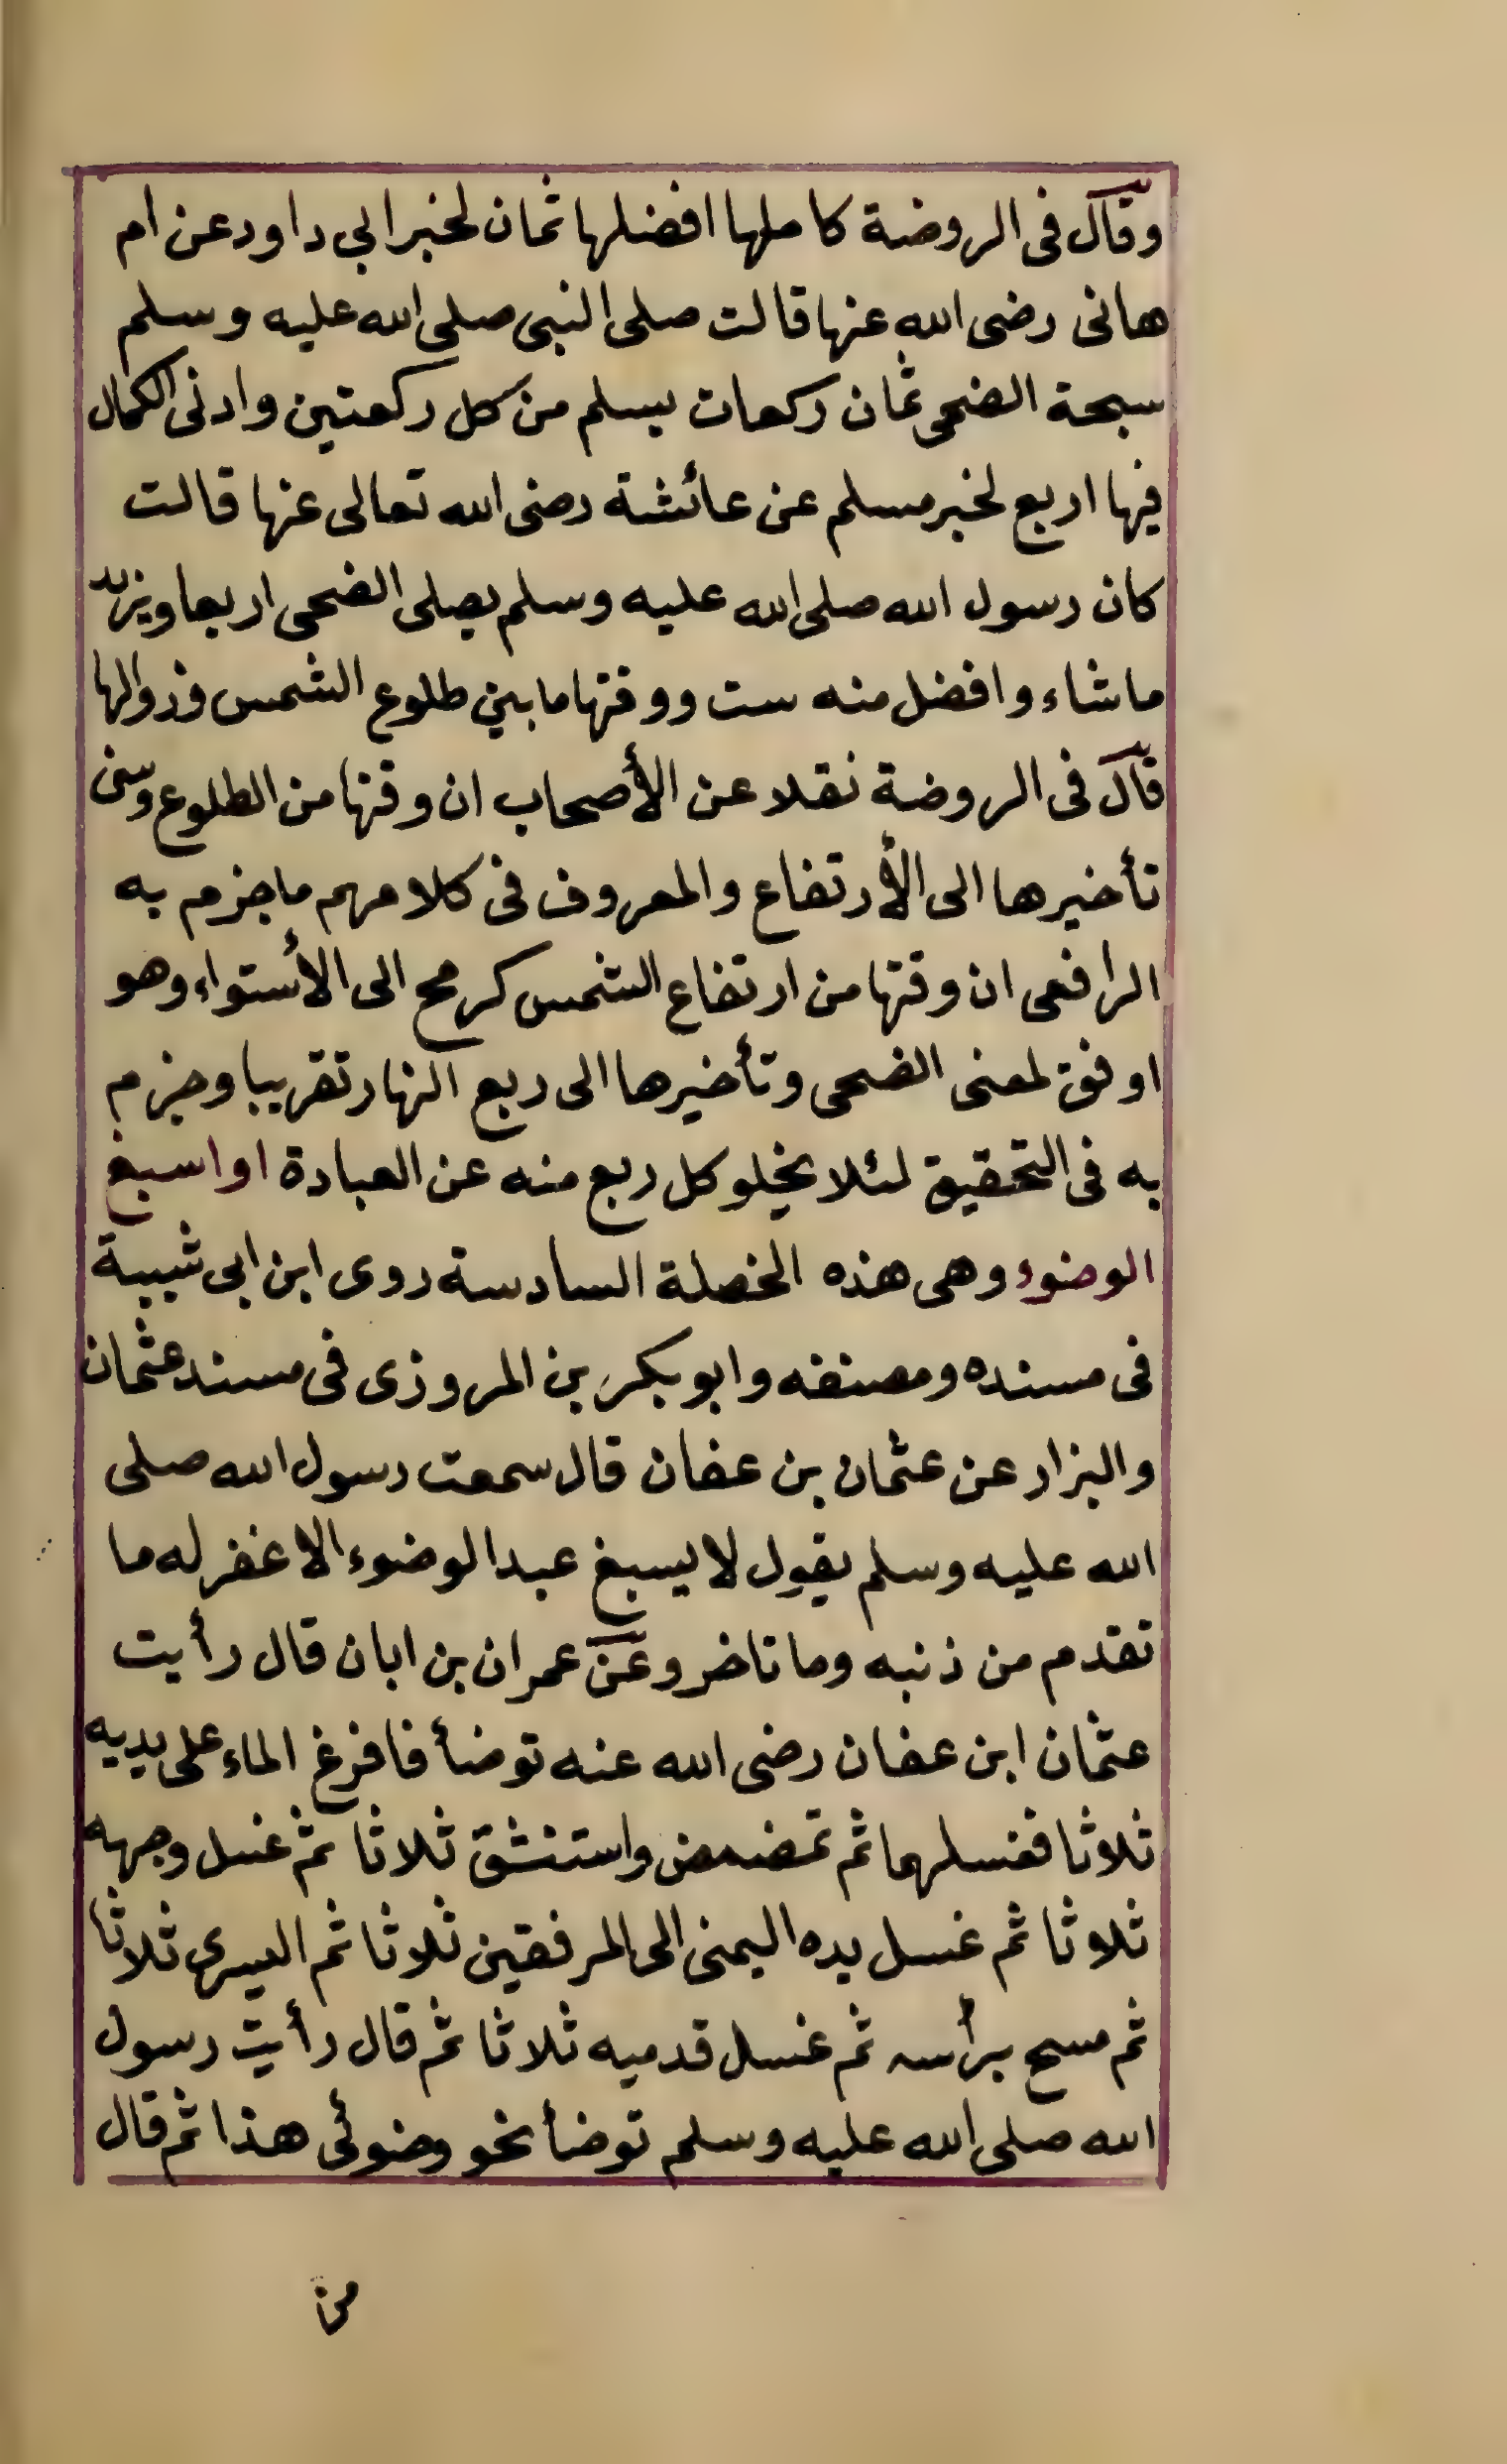 وقال فى الروضة كاملها افضلها ثمان لخبر ابي داود عن ام
هانى رضى الله عنها قالت صلى النبى صلى الله عليه وسلم
سبحة الضحى ثمان ركعات يسلم من كل ركعتين وادنى الكمال
فيها اربع لخبر مسلم عن عائشة رضى الله تعالى عنها قالت
كان رسول الله صلى الله عليه وسلم يصلى الضحى اربعا ويزيد
ماشاء وافضل منه ست ووقتها مابين طلوع الشمس وزوالها
قال فى الروضة نقلا عن الأصحاب ان وقتها من الطلوع وسن
تأخيرها الى الأرتفاع والمعروف فى كلامهم ماجزم به
الرافعى ان وقتها من ارتفاع الشمس كرمح الى الأستواء وهو
اوفق لمعنى الضحى وتأخيرها الى ربع النهار تقريبا وجزم
به فى التحقيق لئلا يخلو كل ربع منه عن العبادة او اسبغ
الوضوء وهى هذه الخصلة السادسة روى ابن ابى شيبة
فى مسنده ومصنفه وابوبكر بن المروزى فى مسند عثمان
والبزار عن عثمان بن عفان قال سمعت رسول الله صلى
الله عليه وسلم يقول لا يسبغ عبد الوضوء الا غفر له ما
تقدم من ذنبه وما تاخر وعن عمران بن ابان قال رأيت
عثمان ابن عفان رضى الله عنه توضأ فافرغ الماء على يديه
ثلاثا فغسلهما ثم تمضمض واستنشق ثلاثا ثم غسل وجهه
ثلاثا ثم غسل يده اليمنى الى المرفقين ثلاثا ثم اليسرى ثلاثا
ثم مسح برأسه ثم غسل قدميه ثلاثا ثم قال رأيت رسول
الله صلى الله عليه وسلم توضأ نحو وضوئى هذا ثم قال
من